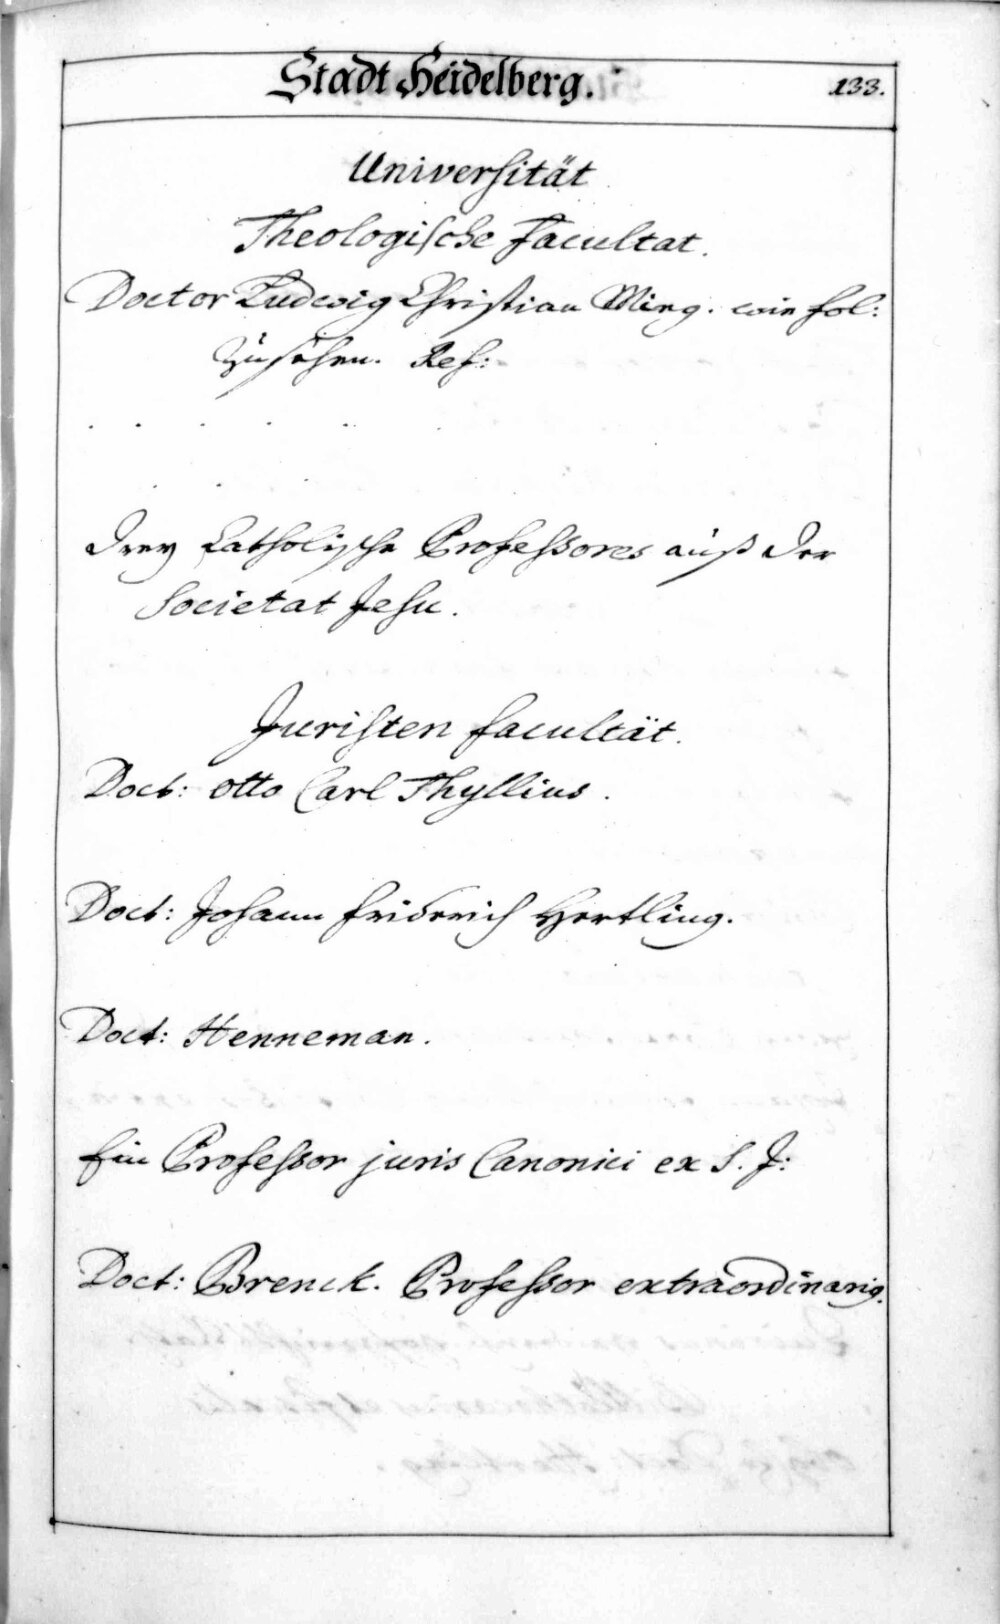 Stadt Heidelberg.
133.
Universität
Theologische Facultat.
Doctor Ludwig Christian Mieg. wie fol:
zu sehen. Ref:
. . . . .
. . .
Drey Catholische Professores auß der
Societat Jesu.
Juristen facultät.
Doct: Otto Carl Thyllius.
Doct: Johann friderich Hertling.
Doct: Henneman.
Ein Professor juris Canonici ex S. J:
Doct: Brenck. Professor extraordinarig.